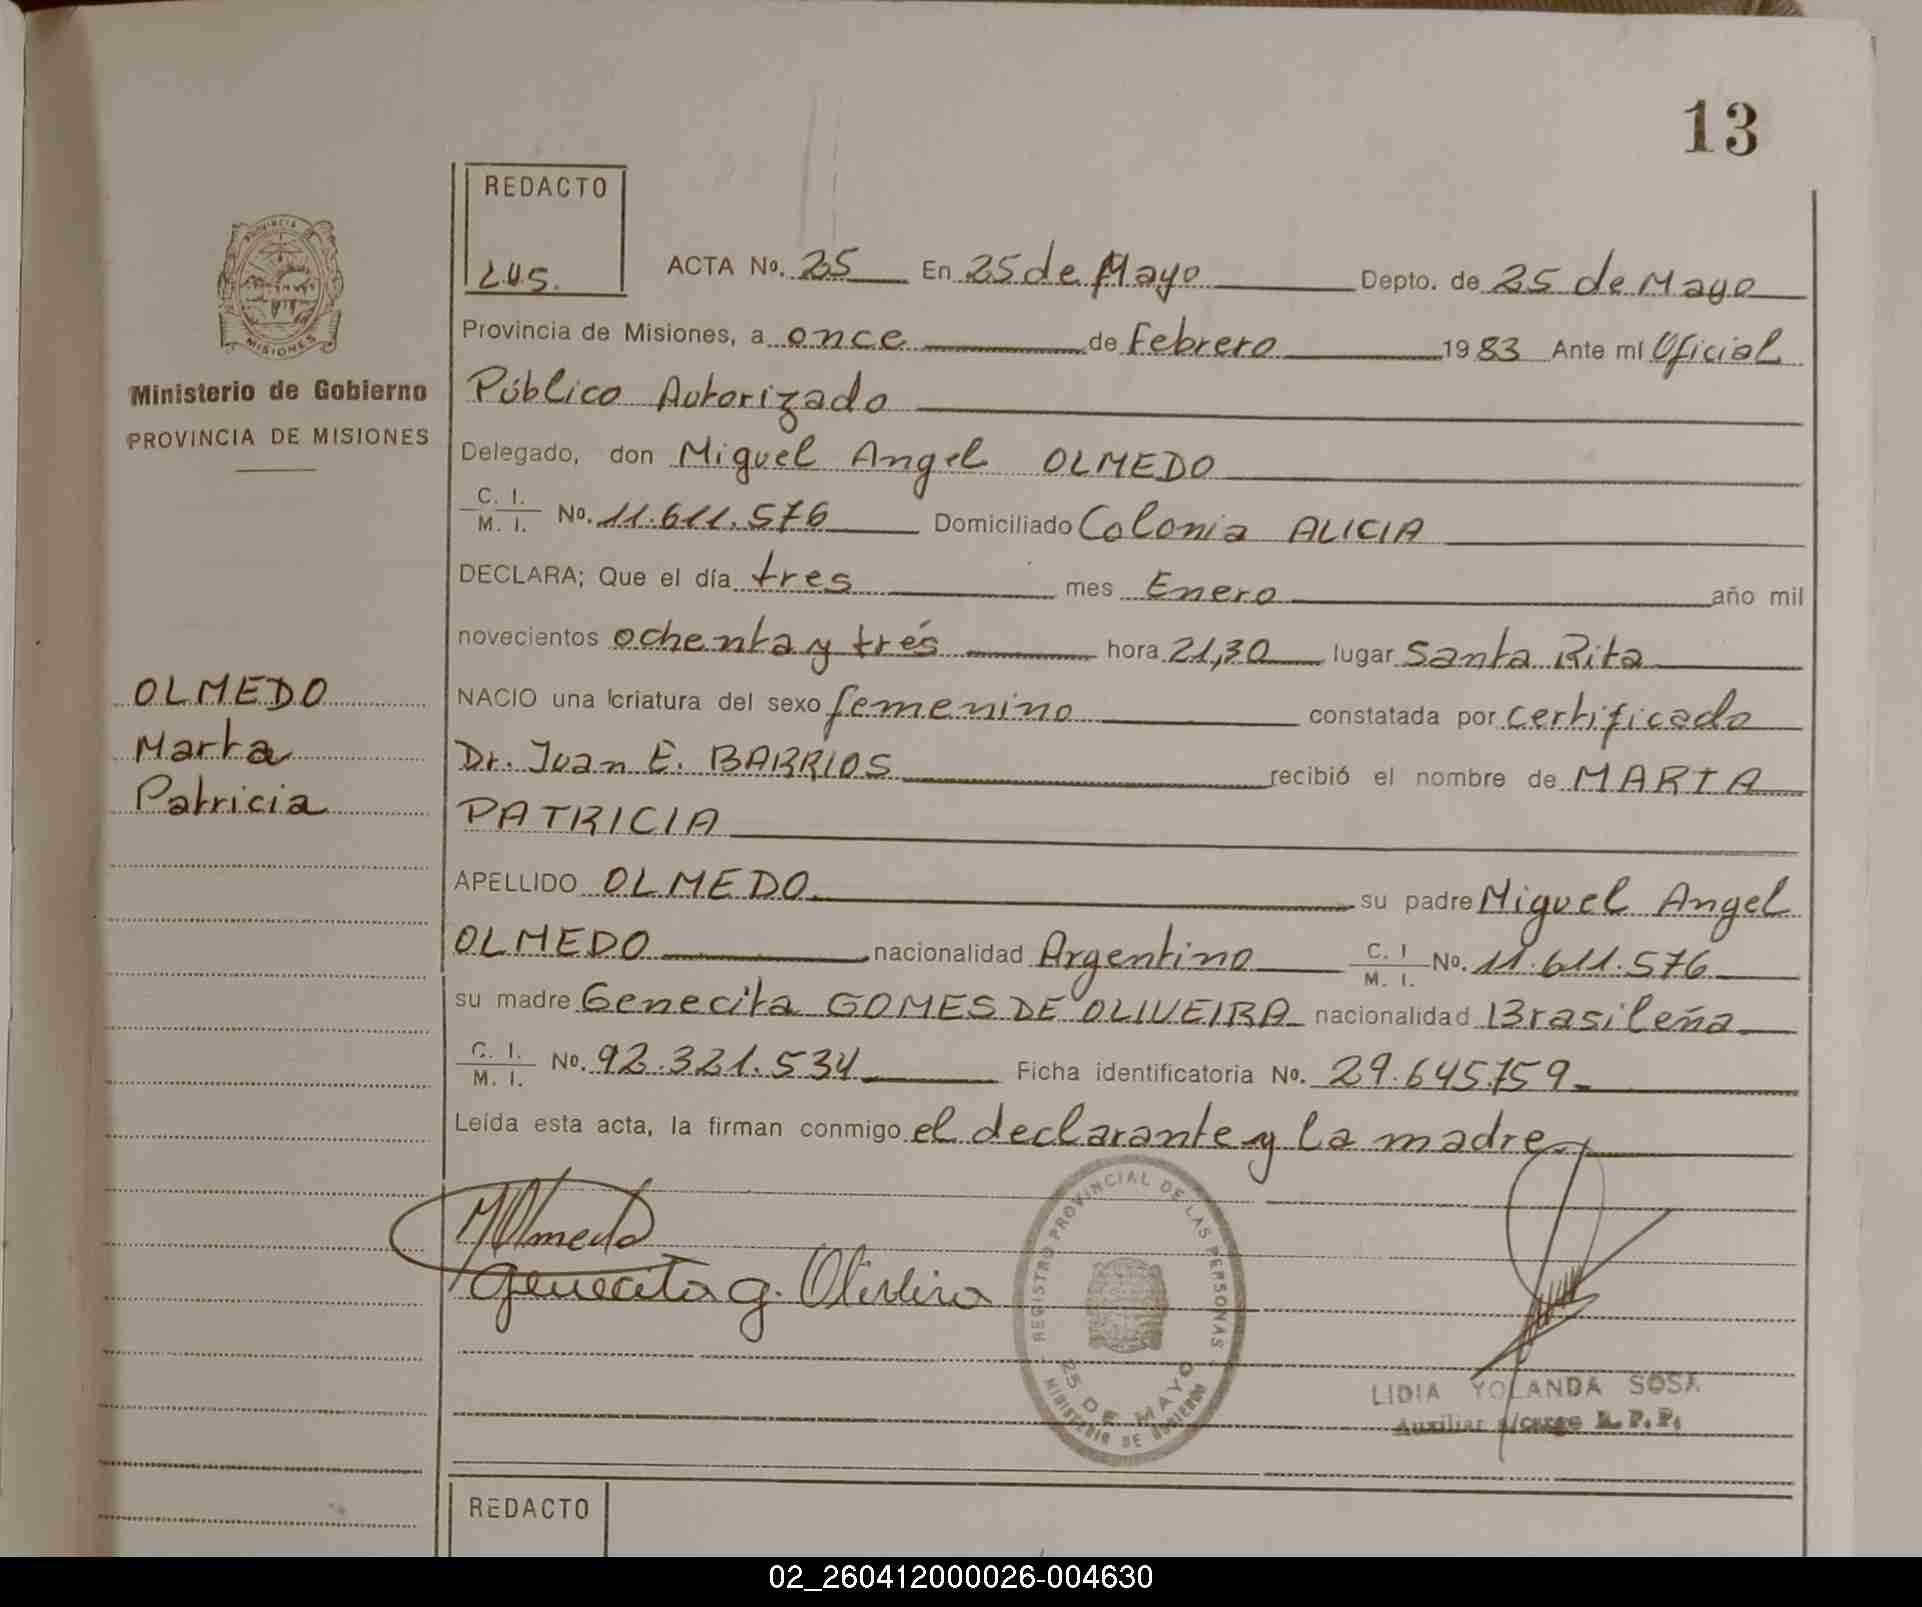 13
REDACTO
L.Y.S.
ACTA No. 25 En 25 de Mayo Depto. de 25 de Mayo
Provincia de Misiones, a once de Febrero 1983 Ante mí Oficial
Público Autorizado
Delegado, don Miguel Angel OLMEDO
C. I. / M. I. No. 11.611.576 Domiciliado Colonia ALICIA
DECLARA; Que el día tres mes Enero año mil
novecientos ochenta y trés hora 21,30 lugar Santa Rita
NACIO una criatura del sexo femenino constatada por certificado
Dr. Juan E. BARRIOS recibió el nombre de MARTA
PATRICIA
APELLIDO OLMEDO su padre Miguel Angel
OLMEDO nacionalidad Argentino C. I / M. I. No. 11.611.576
su madre Genecita GOMES DE OLIVEIRA nacionalidad Brasileña
C. I. / M. I. No. 92.321.534 Ficha identificatoria No. 29.645.759
Leída esta acta, la firman conmigo el declarante y la madre
PROVINCIA
MISIONES
Ministerio de Gobierno
PROVINCIA DE MISIONES
OLMEDO
Marta
Patricia
MOlmedo
Genecita g. Oliveira
REGISTRO PROVINCIAL DE LAS PERSONAS
25 DE MAYO
MINISTERIO DE GOBIERNO
LIDIA YOLANDA SOSA
Auxiliar a/cargo R. P. P.
REDACTO
02_260412000026-004630